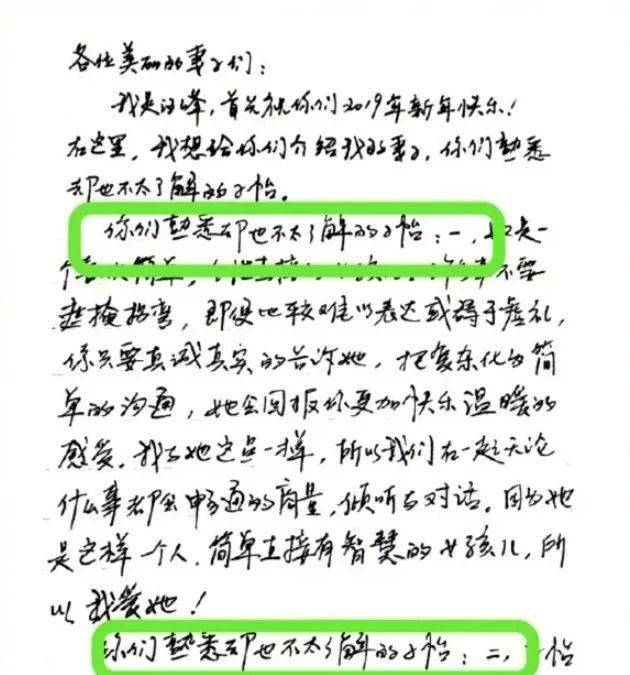 各位美丽的妻子们：
我是汪峰，首先祝你们2019年新年快乐！
在这里，我想给你们介绍我的妻子，你们熟悉
却也不太了解的子怡。
你们熟悉却也不太了解的子怡：一，她是一
个 简单， 不要
遮掩拐弯，即使比较难以表达或碍于虚礼，
你只要真诚真实的告诉她，把复杂化为简
单的沟通，她会回报你更加快乐温暖的
感受。我与她这点一样，所以我们在一起无论
什么事都会畅通的商量，倾听与对话。因为她
是这样一个人，简单直接有智慧的女孩儿，所
以我爱她！
你们熟悉却也不太了解的子怡：二，子怡